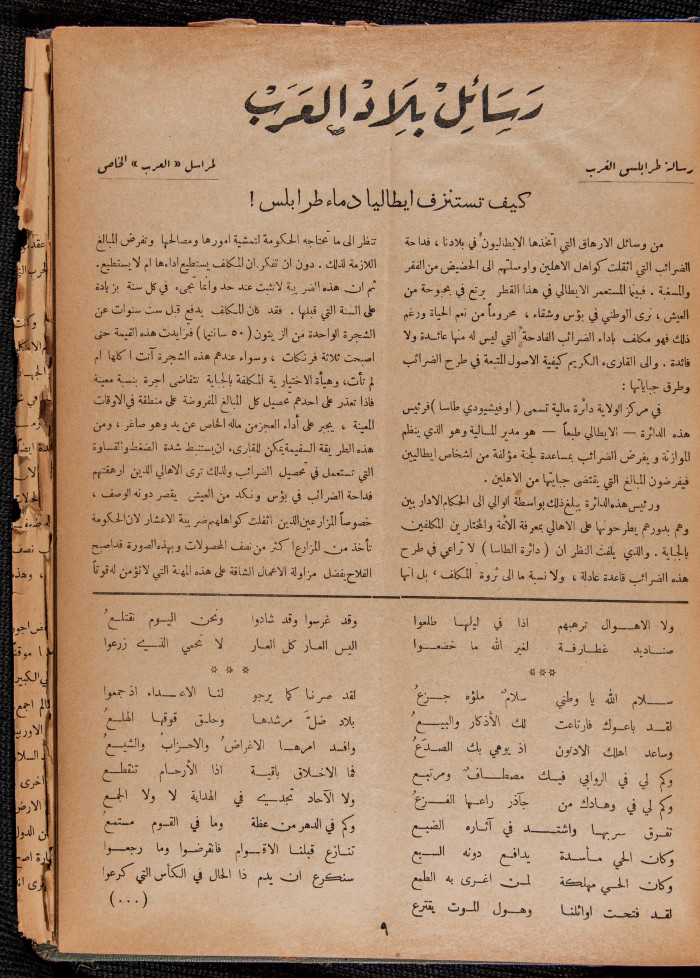 رَسَائِلْ بِلَادِ العَرَبْ
رسالة طرابلس الغرب
لمراسل « العرب » الخاص
كيف تستنزف ايطاليا دماء طرابلس !
من وسائل الارهاق التي اتخذها الايطاليون في بلادنا ، فداحة
الضرائب التي اثقلت كواهل الاهلين واوصلتهم الى الحضيض من الفقر
والمسغبة . فبينما المستعمر الايطالي في هذا القطر يرتع في بحبوحة من
العيش ، نرى الوطني في بؤس وشقاء ، محروماً من نعم الحياة ورغم
ذلك فهو مكلف باداء الضرائب الفادحة التي ليس له منها عائدة ولا
فائدة . والى القارىء الكريم كيفية الاصول المتبعة في طرح الضرائب
وطرق جباياتها :
في مركز الولاية دائرة مالية تسمى ( اوفيشيودي طاسا ) فرئيس
هذه الدائرة — الايطالي طبعاً — هو مدير المالية وهو الذي ينظم
الموازنة ويفرض الضرائب بمساعدة لجنة مؤلفة من اشخاص ايطاليين
فيفرضون المبالغ التي يقتضى جبايتها من الاهلين .
ورئيس هذه الدائرة يبلغ ذلك بواسطة الوالي الى الحكام الاداريين
وهم بدورهم يطرحونها على الاهالي بمعرفة الائمة والمختارين المكلفين
بالجباية . والذي يلفت النظر ان ( دائرة الطاسا ) لا تراعي في طرح
هذه الضرائب قاعدة عادلة ، ولا نسبة ما الى ثروة المكلف ، بل انها
تنظر الى ما تحتاجه الحكومة لتمشية امورها ومصالحها وتفرض المبالغ
اللازمة لذلك . دون ان تفكر ان المكلف يستطيع اداءها ام لا يستطيع .
ثم ان هذه الضريبة لا تثبت عند حد وانما تجيء في كل سنة بزيادة
على السنة التي قبلها . فقد كان المكلف يدفع قبل ست سنوات عن
الشجرة الواحدة من الزيتون ( ٥٠ سانتيما ) فزايدت هذه القيمة حتى
اصبحت ثلاثة فرنكات ، وسواء عندهم هذه الشجرة آتت اكلها ام
لم تأت ، وهيأة الاختيارية المكلفة بالجباية تتقاضى اجرة بنسبة معينة
فاذا تعذر على احدهم تحصيل كل المبالغ المفروضة على منطقة في الاوقات
المعينة ، يجبر على أداء العجز من ماله الخاص عن يد وهو صاغر ، ومن
هذه الطريقة السقيمة يمكن للقارىء ان يستنبط شدة الضغط والقساوة
التي تستعمل في تحصيل الضرائب ولذلك ترى الاهالي الذين ارهقتهم
فداحة الضرائب في بؤس ونكد من العيش يقصر دونه الوصف ،
خصوصاً المزارعين الذين اثقلت كواهلهم ضريبة الاعشار لان الحكومة
تأخذ من المزارع اكثر من نصف المحصولات وبهذه الصورة فداصبح
الفلاح يفضل مزاولة الاعمال الشاقة على هذه المهنة التي لا تؤمن له قوتاً
ولا الاهوال ترهبهم اذا في ليلها طلعوا
صناديد غطارفة لغير الله ما خضعوا
***
سلام الله يا وطني سلامٌ ملؤه جزعُ
لقد باعوك فارتاعت لك الأذكار والبيعُ
وساعد اهلك الادنون اذ يوهي بك الصدّعُ
وكم لي في الروابي فيك مصطاف ومرتبع
وكم لي في وهادك من جآذر راعها الفزعُ
تفرق سربها واشتد في آثاره الضبع
وكان الحي مأسدة يدافع دونه السبع
وكان الحي مهلكة لمن اغرى به الطمع
لقد فتحت اوائلنا وهول الموت يقترع
وقد غرسوا وقد شادوا ونحن اليوم نقتلعُ
اليس العار كل العار لا نحمي الذي زرعوا
* * *
لقد صرنا كما يرجو لنا الاعداء اذ جمعوا
بلاد ضلّ مرشدها وحلق فوقها الهلعُ
وافسد امرها الاغراضُ والاحزابُ والشيعُ
فما الاخلاق باقية اذا الأرحام تنقطع
ولا الآحاد تجدي في الهداية لا ولا الجمع
وكم في الدهر من عظة وما في القوم مستمعُ
تنازع قبلنا الاقوام فانقرضوا وما رجعوا
سنكرع ان يدم ذا الحال في الكأس التي كرعوا
( ٠٠٠ )
٩